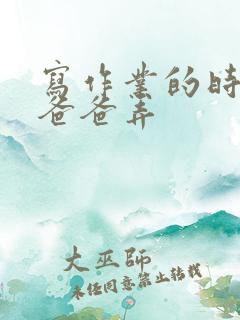 寫作業的時
爸爸弄
大巫師
未經同意禁止轉載